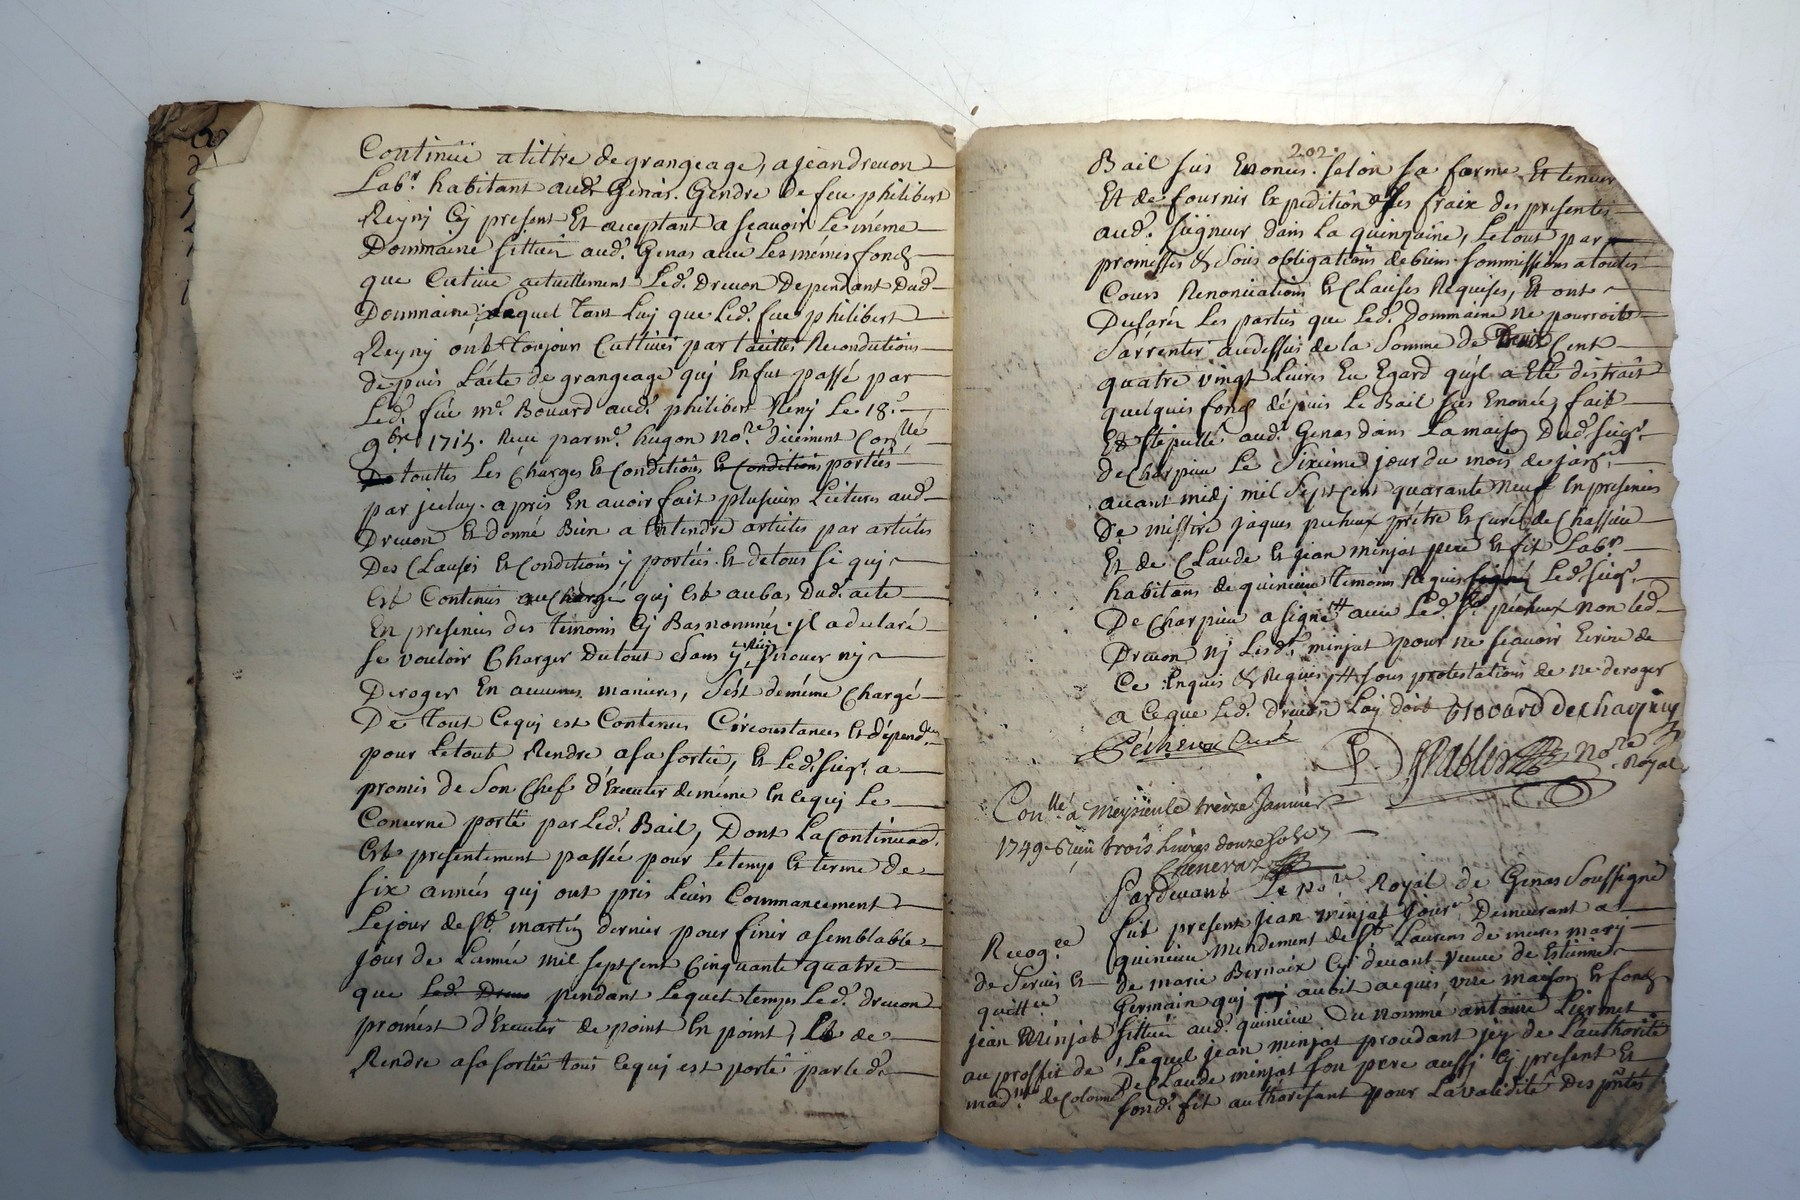 Continüé a tittre de grangeage, a jean dreuon
Lab.r habitant aud.t Genas. Gendre de feu philibert
Reynj Cy present Et acceptant a scauoir Le méme
Dommaine sittué aud.t Genas auec Les mémes fonds
que Cutive actuellement Led.t Dreuon Dependant Dud.
Dommaine, Lequel Tant Luy que Led.t feu philibert
Reynj ont toujour Cultiués par tacittes Recondutions
depuis L'acte de grangeage quj En fut passé par
Led.t feu m.e Bouard aud.t philibert Renj Le 18.e
9.bre 1715. Receu par m.e hugon No.re düement Con.llé
De touttes Les Charges Et Conditions Et Conditions portées
par jceluy. apres En auoir fait plusieurs Lectures aud.
Dreuon Et donné Bien a Entendre articles par articles
Des Clauses Et Conditions y portées. Et de tous se quj
Est Contenus au Chargé quj Est au bas Dud. acte
En presences des temoins Cj Bas nommés. jl a declaré
se vouloir Charger Du tout Sans y rien jnouer nj
Deroger En aucunes manieres, S'est deméme Chargé
De Tout Cequj est Contenus Circonstances Et dépend.ces
pour Le tout Rendre a sa sortie, Et Led. seig.r a
promis de Son Chef d'Executer deméme En cequj Le
Concerne porté par Led.t Bail, Dont La Continuaõn
Est presentement passée pour Le temps Et terme de
six années quj ont pris Leurs Commancement
Le jour de St. martin dernier pour finir a semblable
jour de L'année mil sept Cent Cinquante quatre
que Led.t Dreuo pendant Lequel temps Led.t dreuon
promest d'Executer de point En point, Et de
Rendre a sa sortie tous Cequj est porté par led.t
202.
Bail sus Enoncé. selon sa forme Et teneur
Et de fournir Expedition Les fraix des presentes
aud.t seigneur dans La quinzaine, Le tout par
promesses & sous obligations de biens. sommissions a toutes
Cours Renonciations Et Clauses Requises, Et ont
Declarés Les parties que Led.t Dommaine ne pourroit
S'arrenter audessus de la Somme de Cent
quatre vingt Livres Eu Egard quýl a Eté distrait
quelques fonds dépuis Le Bail sus Enoncé, fait
Et stipullé aud.t Genas dans La maison Dud. seig.r
de Charpieu Le Sixième jour du mois de janv.r
auant midj mil Sept Cent quarante Neuf En presences
De missire jaques pecheux prétre Et curé de Chassieu
Et de Claude Et jean minjat pere Et fils Lab.rs
habitans de quincieu temoins Requis signés Led.t seig.r
De Charpieu a signé auec Led.t Sr. pécheux non led.
Dreuon nj Lesd.ts minjat pour ne scauoir Ecrire de
Ce Enquis & Requis sous protestations de ne deroger
a Ceque Led.t dreuon Luj doit
Pécheux Curé
No.re Royal
Con.llé à Meyzieu le treize Janvier
1749 Reçü trois Livres douze sols
Pardeuant Le No.re Royal de Genas Soussigné
fut present Jean minjat Jour.r Demeurant a
quincieu mendement de St. Laurens de mures mary
de marie Bernaix Cy deuant veuue de Etienne
Germain quj auoit acquis, vne maison Et fonds
sittués aud.t quincieu Du nommé antoine Liermet
Lequel jean minjat procedant jcy de L'authorité
De Claude minjat son pere aussj Cj present Et
sond.t fils authorisant pour La validité Des p.ntes
Recog.ce
de Seruis Et
quitt.ce
jean Minjat
au proffit de
mad.me de Colonne